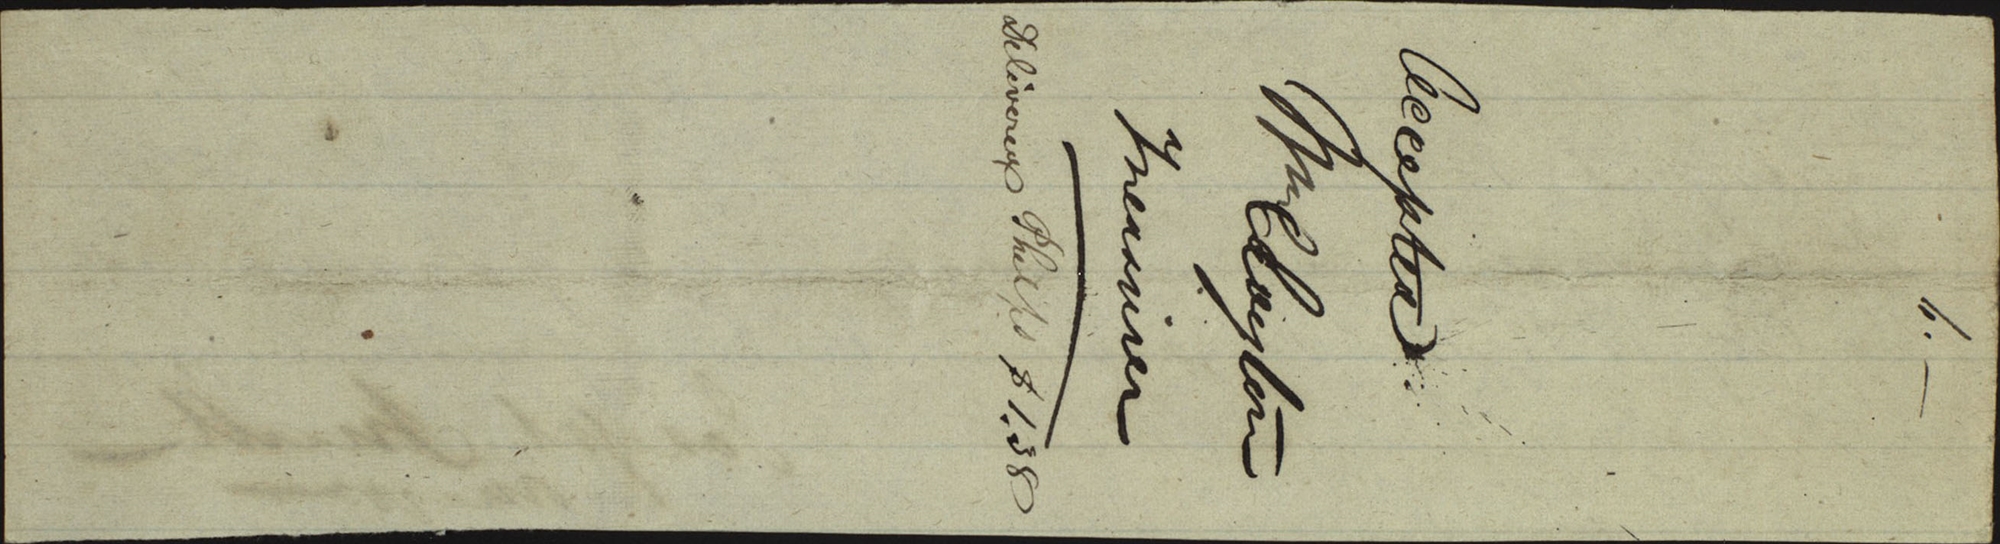 h.—
Accepted
Wm Clayton
Treasurer
Delivered Phelps $1.38